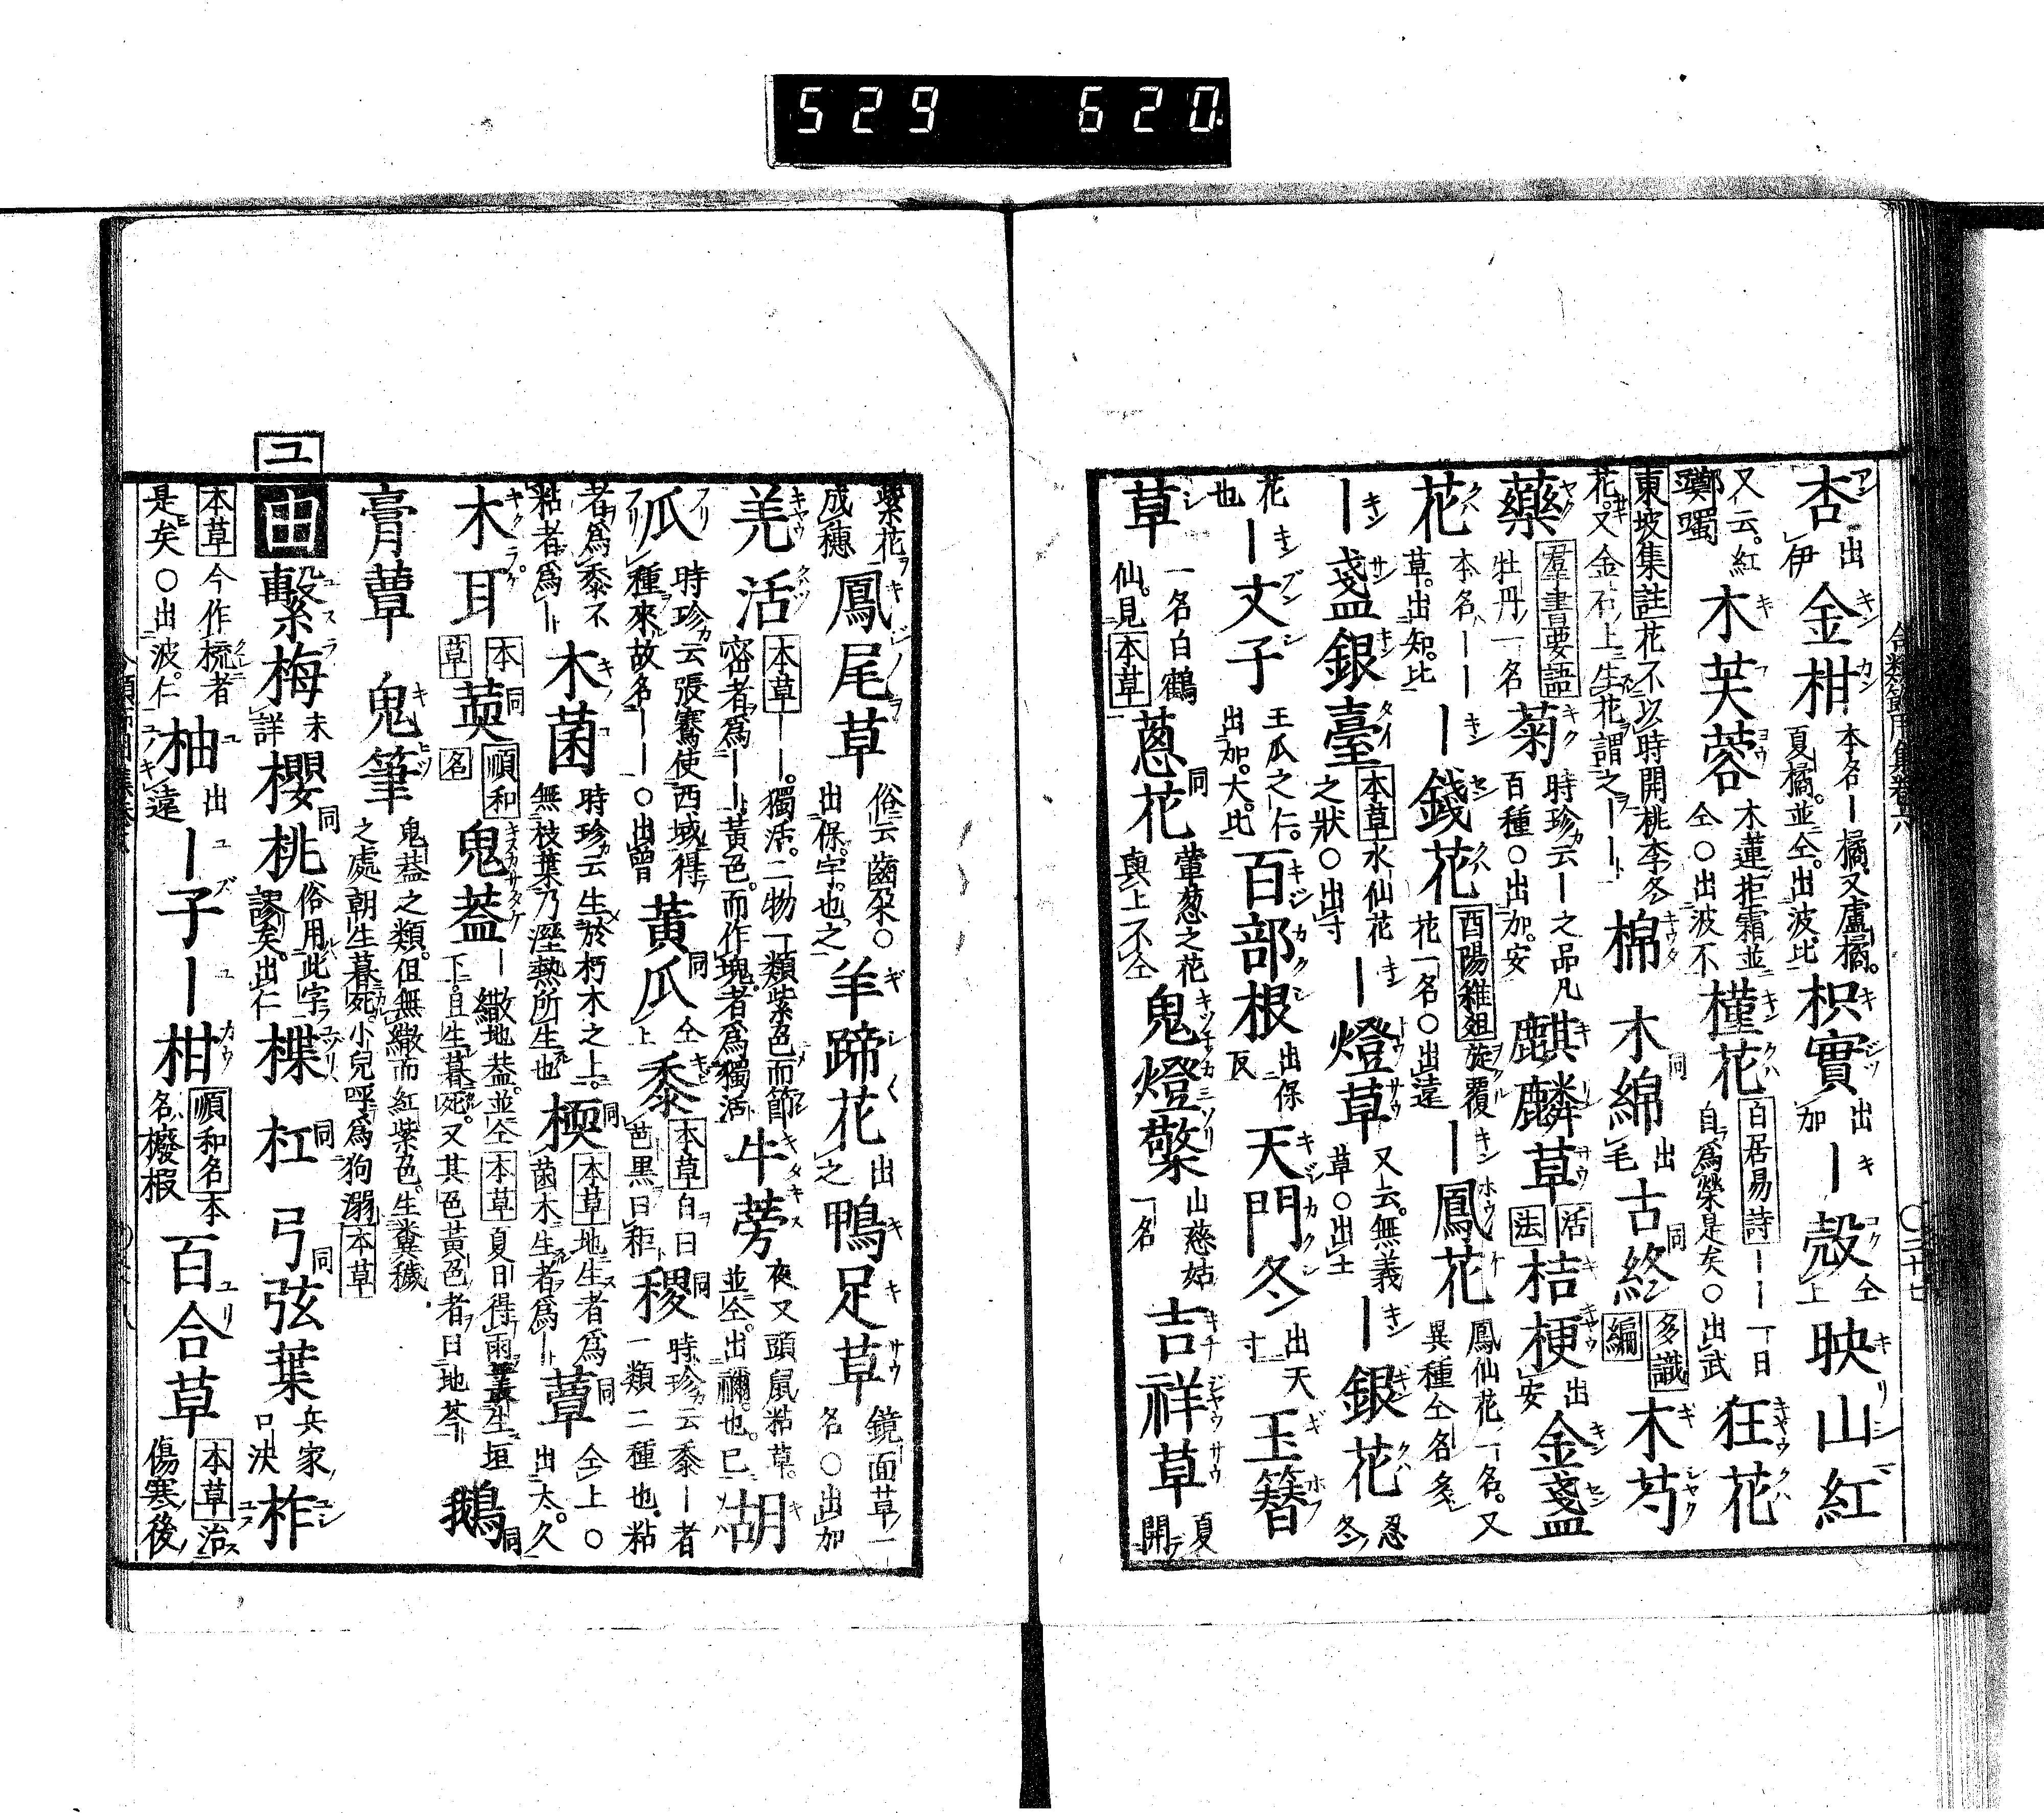 529 620
合類節用集卷六
杏 出伊 金柑 本名ー橘又盧橘夏橘並仝出波比 枳實 出加 ー殼 仝上 映山紅
又云紅躑躅 木芙蓉 木蓮拒霜並仝○出波不 槿花 白居易詩ーー一日自為榮是矣○出武 狂花
東坡集註 花不以時開桃李冬花又金石上生花謂之ーー 棉 木綿 同出毛 古終 同 多識編 木芍
藥 羣書要語 牡丹一名 菊 時珍云ー之品凡百種○出加安 麒麟草 活法 桔梗 出安 金盞
花 本名ーー草出知比 ー錢花 酉陽雜俎 旋覆花一名○出遠 ー鳳花 鳳仙花一名又異種仝名多
ー盞銀臺 本草 水仙花之狀○出寸 ー燈草 又云無義草○出土 ー銀花 忍冬
花也 ー文子 王瓜之仁出加大比 百部根 出保瓦 天門冬 出天寸 玉簪
草 一名白鶴仙見本草 蔥花 同 葷蔥之花與上不仝 鬼燈檠 山慈姑一名 吉祥草 夏開
紫花成穗 鳳尾草 俗云齒朶○出保字也之 羊蹄花 出之 鴨足草 鏡面草一名○出加
羌活 本草 ーー獨活二物一類紫色而節密者為ーー黃色而作塊者為獨活 牛蒡 夜叉頭鼠粘草並仝出禰也巳 胡
瓜 時珍云張騫使西域得種來故名ーー○出曾 黃瓜 同仝上 黍 本草 白曰芑黑曰秬 稷 同 時珍云黍ー者一類二種也粘
者為黍不粘者為ー 木菌 時珍云生於朽木之上無枝葉乃溼熱所生也 㮕 同 本草 地生者為菌木生者為ー 蕈 同 仝上○出太久
木耳 本草 萸 同 順和名 鬼蓋 ー繖地蓋並仝 本草 夏日得雨叢生垣下且生暮死又其色黃白者曰地苓 鵝 同
膏蕈 鬼筆 鬼蓋之類但無繖而紅紫色生糞穢之處朝生暮死小兒呼為狗溺 本草
ユ
由 毄梅 未詳 櫻桃 同 俗用此字謬矣出仁 楪 杠 同 弓弦葉 同 兵家口決 柞
本草 今作梳者是矣○出波仁 柚 出遠 ー子 ー柑 順和名 本名櫠椵 百合草 本草 治傷寒後